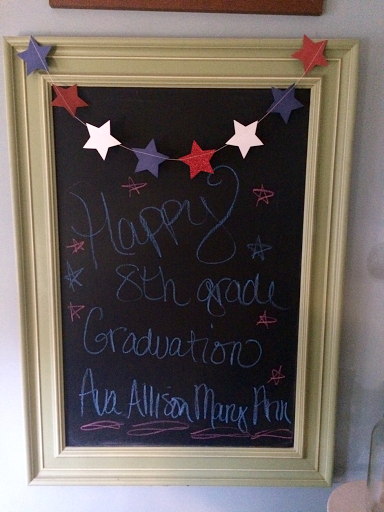 Happy
8th grade
Graduation
Ava Allison Mary Ann